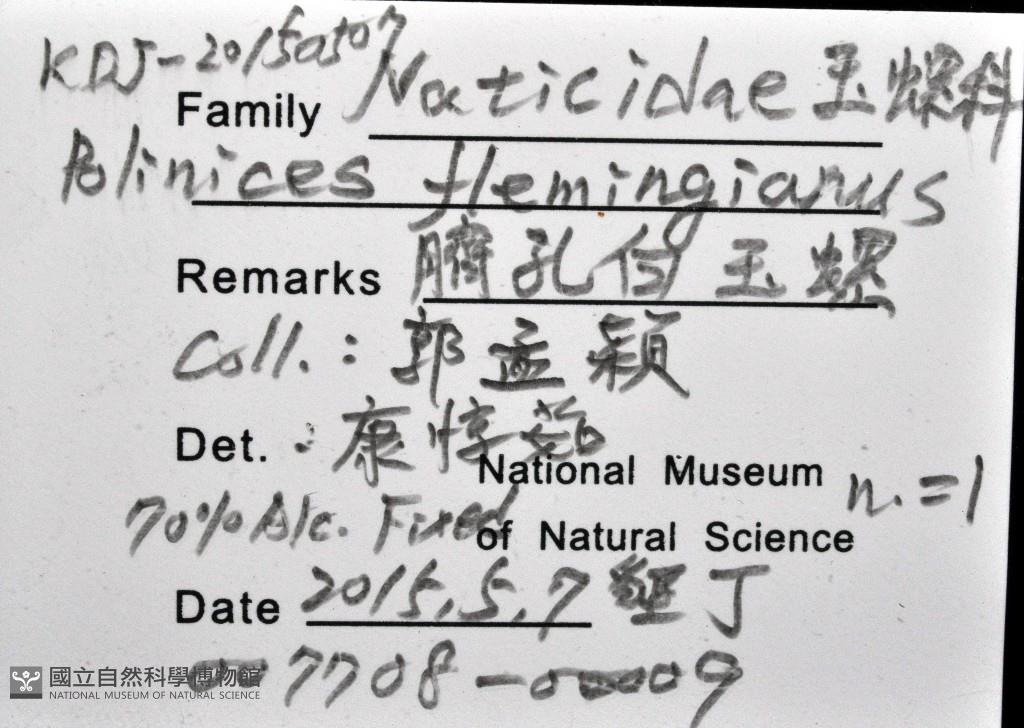 KDJ-20150507
Family Naticidae 玉螺科
Polinices flemingianus
Remarks 臍孔白玉螺
Coll.: 郭孟穎
Det.: 康惇茹
National Museum n.=1
70% Alc. Fixed
of Natural Science
Date 2015.5.7 墾丁
007708-00009
國立自然科學博物館
NATIONAL MUSEUM OF NATURAL SCIENCE